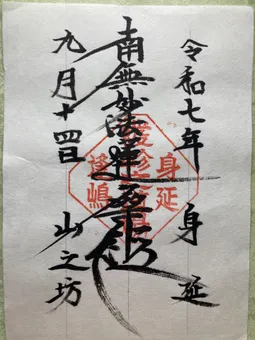 令和七年 身延
身延
南無妙法蓮華経
九月十四日 山之坊